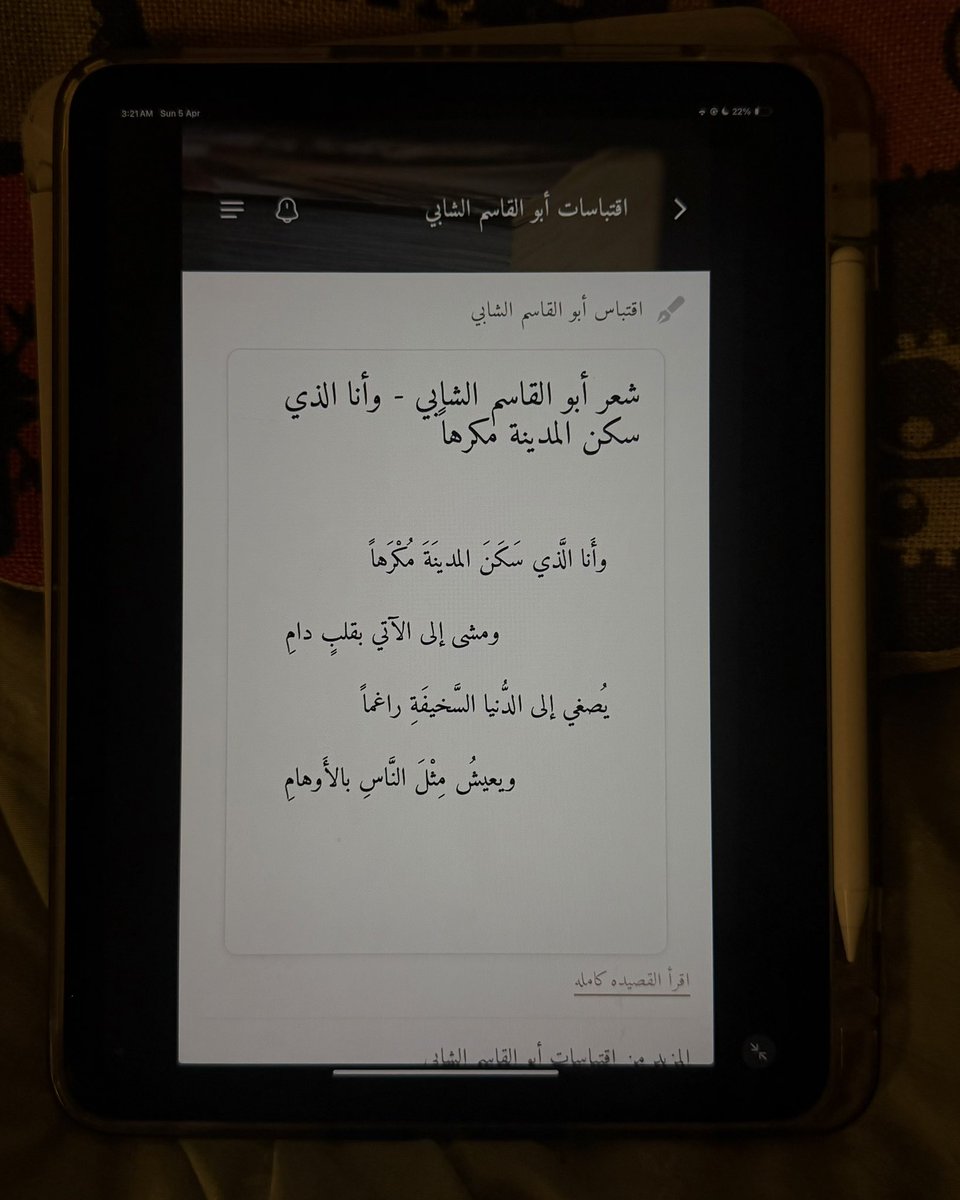 3:21 AM Sun 5 Apr 22%
اقتباسات أبو القاسم الشابي
اقتباس أبو القاسم الشابي
شعر أبو القاسم الشابي - وأنا الذي
سكن المدينة مكرهاً
وأَنا الَّذي سَكَنَ المدينَةَ مُكْرَهاً
ومشى إلى الآتي بقلبٍ دامِ
يُصغي إلى الدُّنيا السَّخيفَةِ راغماً
ويعيشُ مِثْلَ النَّاسِ بالأَوهامِ
اقرأ القصيده كامله
المزيد من اقتباسات أبو القاسم الشابي